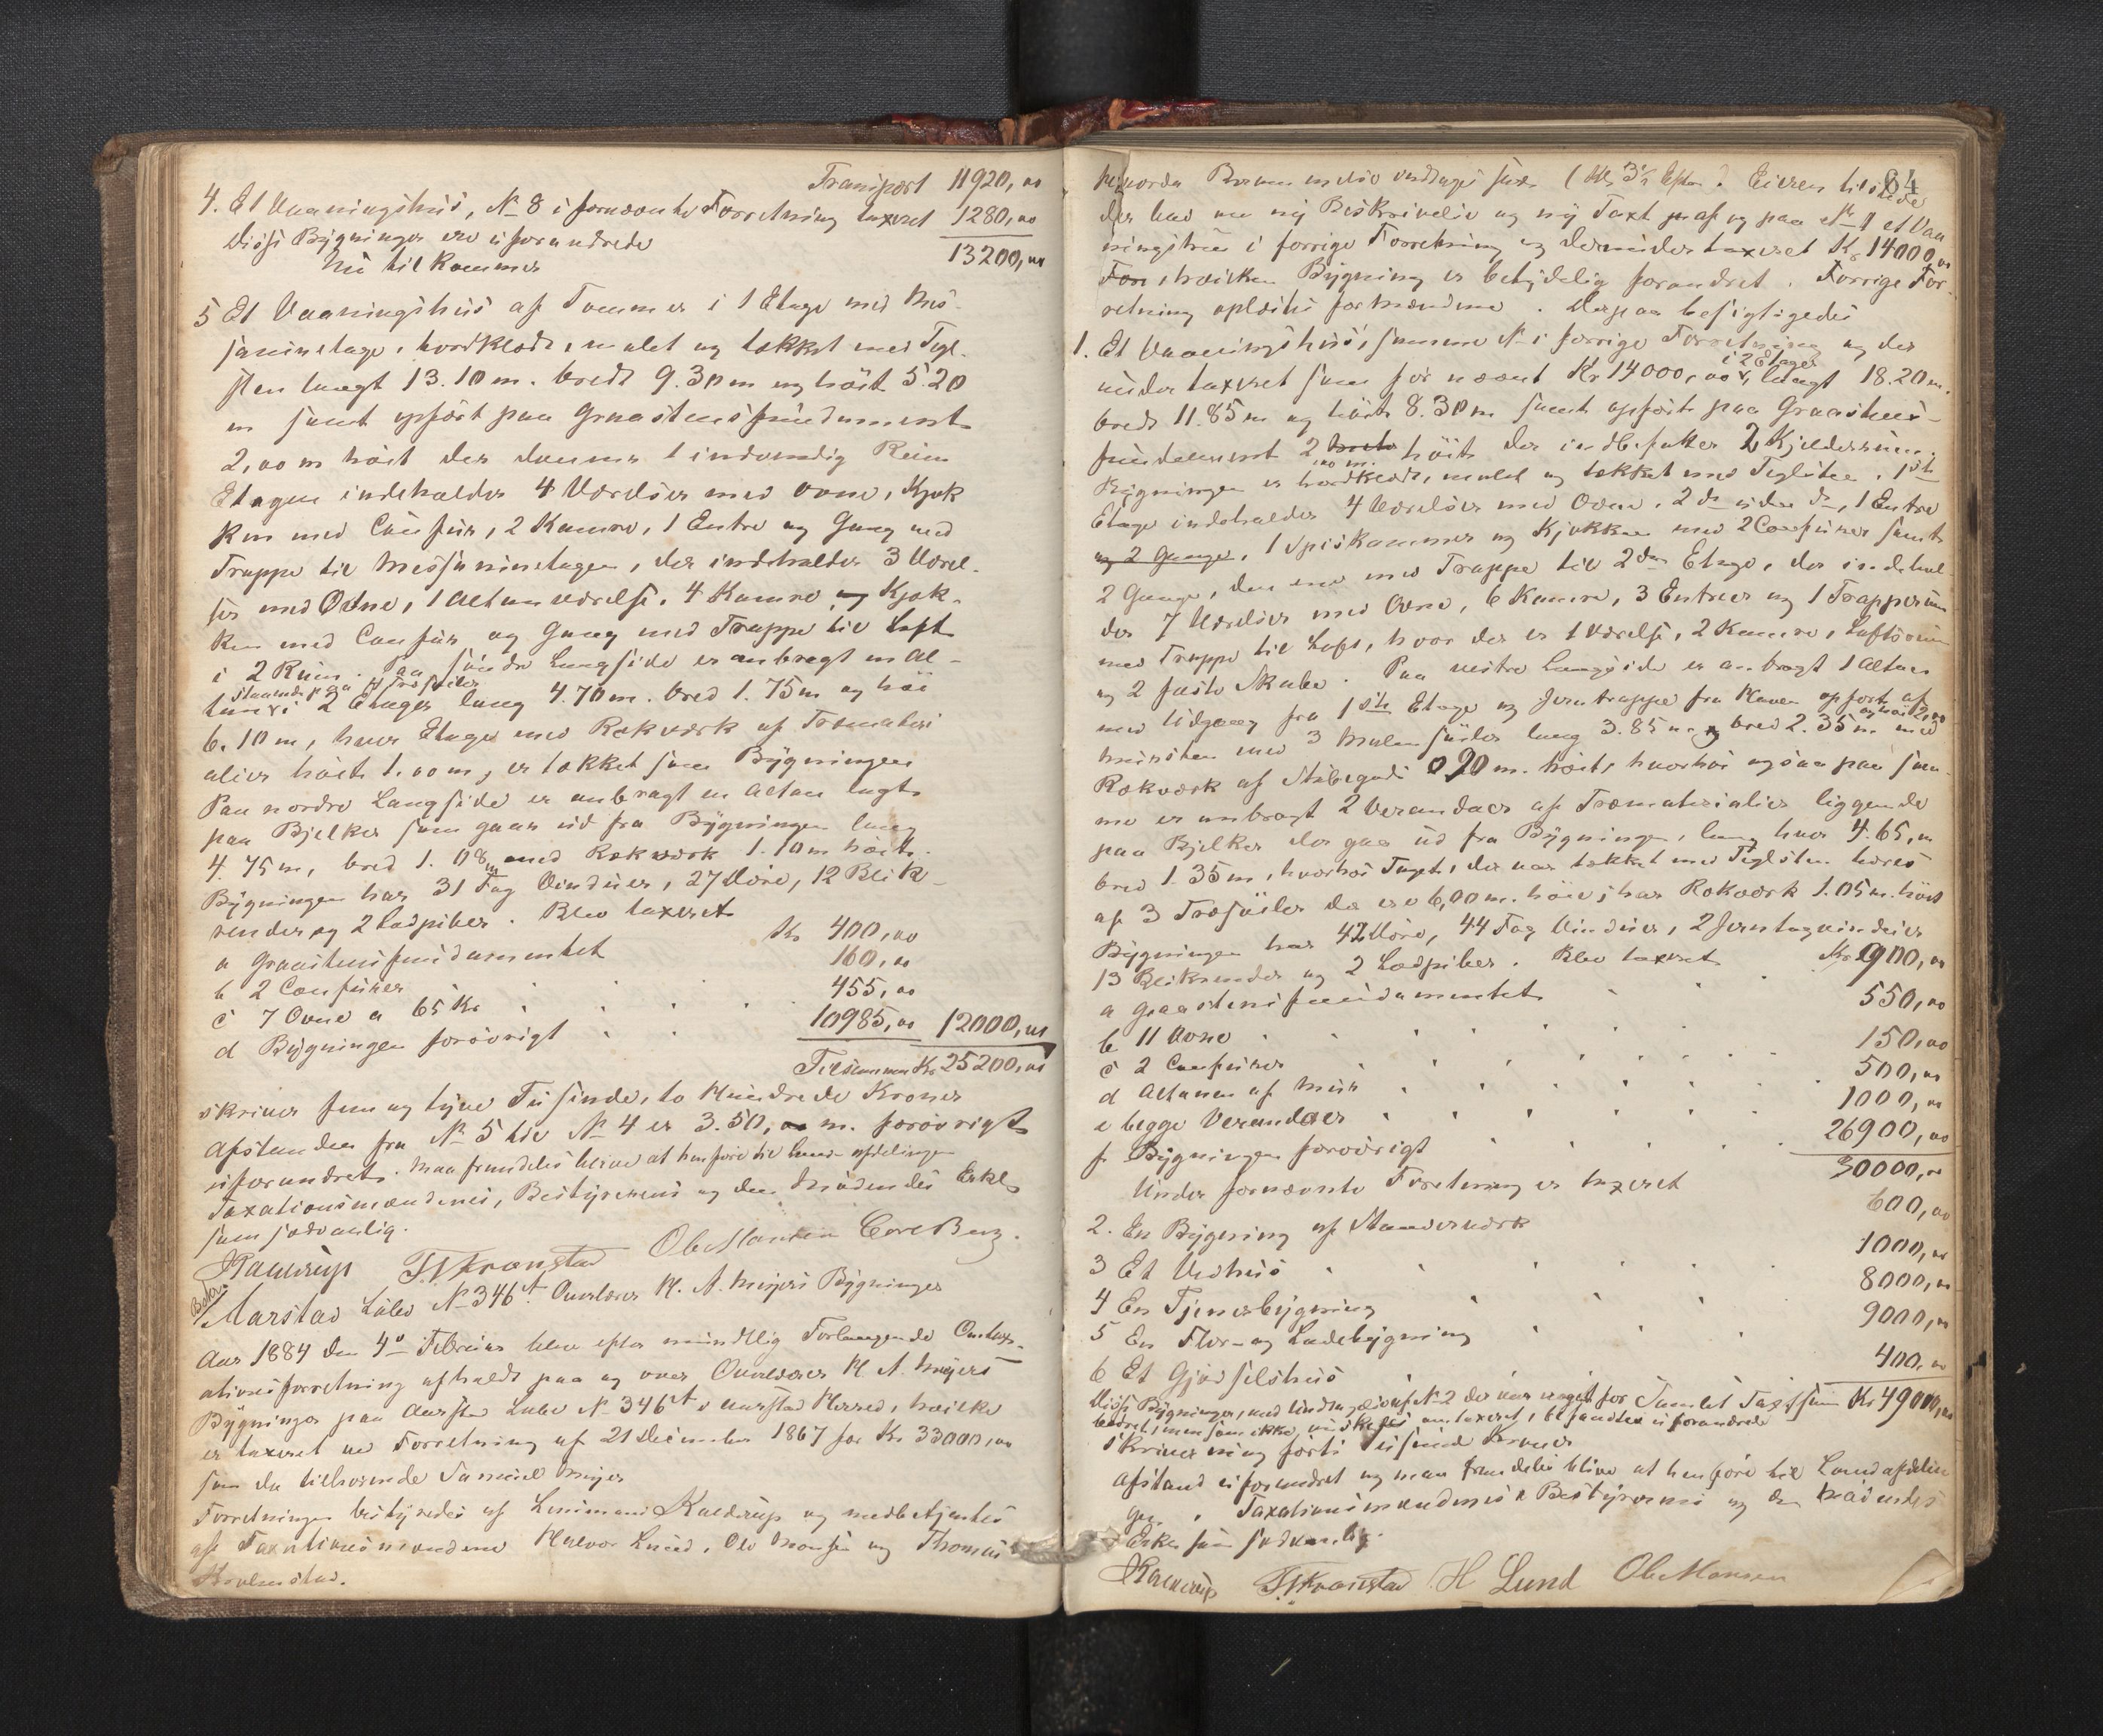 Transport 11920,00
4. Et Vaaningshus, No 8 i fornævnte Forretning taxeret 1280,00
Disse Bygninger ere uforandrede 13200,00
Nu tilkommer
5 Et Vaaningshus af Tømmer i 1 Etage med Mes-
saninetage, bordklædt, malet og tækket med Tegl-
sten langt 13.10 m. bredt 9.30 m og höit 5.20
m samt opfört paa Graastensfundament
2,00 m höit der danner 1 indvendig Rum
Etagen indeholder 4 Værelser med Ovne, Kjøk
ken med Comfur, 2 Kamre, 1 Entre og Gang med
Trappe til Messaninetagen, der indeholder 3 Værel-
ser med Ovne, 1 Altanværelse, 4 Kamre og Kjøk-
ken med Comfur og Gang med Trappe til Loft
i 2 Rum. Paa söndre Langside er anbragt en Al-
staaende paa Træsöiler
tan i 2 Etager lang 4.70 m. bred 1.75 m og höi
6.10 m, hver Etage med Rækværk af Træmateri
alier höit 1.00 m, er tækket som Bygningen
Paa nordre Langside er anbragt en Altan lagt
paa Bjelker som gaar ud fra Bygningen lang
4.75 m, bred 1.08 m med Rækværk 1.10 m höit.
Bygningen har 31 Fag Vinduer, 27 Döre, 12 Blik-
render og 2 Ladpiber. Blev taxeret
a Graastensfundamentet Kr 400,00
b 2 Comfurer 160,00
c 7 Ovne a 65 Kr 455,00
d Bygningen forövrigt 10985,00 12000,00
Tilsammen Kr 25200,00
skriver fem og tyve Tusinde, to Hundrede Kroner
Afstanden fra No 5 til No 4 er 3.50, m. forövrigt
uforandret. Maa fremdeles blive at henføre til Landafdelingen
Taxationsmændenes, Bestyrerens og den Mödendes Erkl.
som sædvanlig.
Kaldrup T. Kronstad Ole Monsen Carl Berg.
Aarstad Löbe No 346 A. Overlærer H. A. Meyers Bygninger
Aar 1884 den 4de Februar blev efter mundtlig Forlangende Omtax-
ationsforretning afholdt paa og over Overlærer H. A. Meyers
Bygninger paa Aarstad Löbe No 346 A i Aarstad Herred, hvilke
er taxeret ved Forretning af 21 December 1867 for Kr 33000,00
som da tilhørende Samuel Meyer
Forretningen bestyredes af Lensmand Kaldrup og medbetjentes
af Taxationsmændene Halvor Lund, Ole Monsen og Thomas
Kronstad.
64
Eieren tilstede
der bad om ny Beskrivelse og ny Taxt af og paa No 1 et Vaa
ningshus i forrige Forretning og derunder taxeret Kr 14000,00
hvilken Bygning er betydelig forandret. Forrige For-
retning oplæstes for Mændene. Derpaa besigtigedes
1. Et Vaaningshus, samme No i forrige Forretning og der
i 2 Etager
under taxeret som før nævnt Kr 14000,00, langt 18.20 m.
bredt 11.85 m og höit 8.30 m samt opfört paa Graastens-
fundament 2 höit der indbefatter 2 Kjelderrum.
,00 m.
Bygningen er bordklædt, malet og tækket med Teglsten. 1ste
Etage indeholder 4 Værelser med Ovne, 2 do uden do, 1 Entre
og 2 Gange, 1 Spiskammer og Kjøkken med 2 Comfurer samt
2 Gange, den ene med Trappe til 2den Etage, der indehol
der 7 Værelser med Ovne, 6 Kamre, 3 Entreer og 1 Trapperum
med Trappe til Loft, hvor der er 1 Værelse, 2 Kamre, Loftsrum
og 2 faste Skabe. Paa vestre Langside er anbragt 1 Altan
med Udgang fra 1ste Etage og Jerntrappe fra Haven opfört af
og höi 2,00
Mursten med 3 Mursöiler lang 3.85 m. bred 2.35 m. med
Rækværk af Støbegods 0.90 m. höit, hvorhos ogsaa paa sam-
me er anbragt 2 Verandaer af Træmaterialier liggende
paa Bjelker der gaa ud fra Bygningen, lang hver 4.65 m
bred 1.35 m, hvorhos Taget, der var tækket med Teglsten bæres
af 3 Træsöiler der ere 6,00 m. höie; har Rækværk 1.05 m. höit
Bygningen har 42 Döre, 44 Fag Vinduer, 2 Jerntagvinduer
13 Blikrender og 2 Ladpiber. Blev taxeret
a Graastensfundamentet Kr 900,00
b 11 Ovne 550,00
c 2 Comfurer 150,00
d Altanen af Mur 500,00
e begge Verandaer 1000,00
f Bygningen forövrigt 26900,00
Under fornævnte Forretning er taxeret 30000,00
2. En Bygning af Stavværk 600,00
3 Et Vedhus 1000,00
4 En Tjenerbygning 8000,00
5 En Flor- og Ladebygning 9000,00
6 Et Gjødselshus 400,00
Disse Bygninger, med Undtagelse af No 2 der var noget for Samlet Taxtsum Kr 49000,00
bedret, men som ikke önskedes omtaxeret, befandtes uforandrede
skriver ni og førti Tusind Kroner
Afstand uforandret og maa fremdeles blive at henføre til Landafdelin
gen. Taxationsmændenes Bestyrerens og den Mödendes
Erkl. som sædvanlig.
Kaldrup T. Kronstad H Lund Ole Monsen